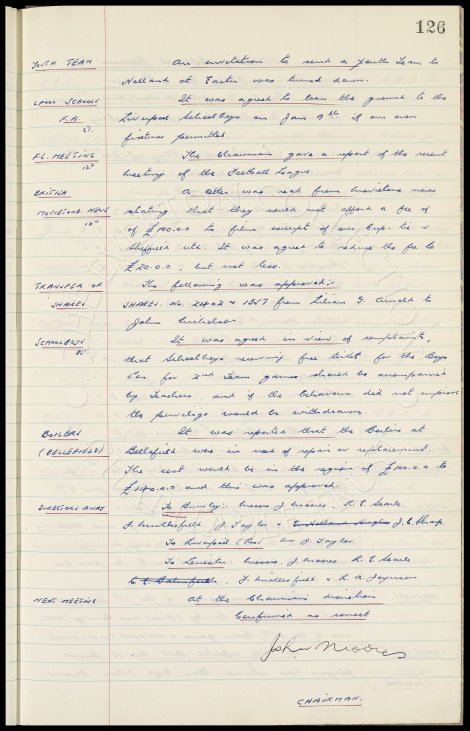 126
YOUTH TEAM An invitation to send a Youth Team to
Holland at Easter was turned down.
LPOOL SCHOOLS It was agreed to loan the ground to the
F.A. Liverpool Schoolboys on Jan 9th if our own
fixtures permitted.
F.L. MEETING The Chairman gave a report of the recent
meeting of the Football League
BRITISH A letter was read from Movietone news
MOVIETONE NEWS stating that they could not afford a fee of
of £100.0.0 to film excerpt of our Cup-tie v
Sheffield utd. It was agreed to reduce the fee to
£20.0.0, but not less.
TRANSFER OF The following was approved:
SHARES. SHARES. No. 2402 & 1357 from Lilian G. Arnold to
John Nicholson.
SCHOOLBOYS It was agreed in view of complaints,
that Schoolboys receiving free tickets for the Boys
Pen for 2nd Team games should be accompanied
by Teachers, and if the behaviour did not improve
the privilege would be withdrawn.
BOILERS It was reported that the Boilers at
(BELLEFIELD) Bellefield were in need of repair or replacement.
The cost would be in the region of £100.0.0 to
£140.0.0 and this was approved.
DIRECTORS AWAY To Burnley: Messrs J. Moores, R. E. Searle
F. Micklesfield J. Taylor & J. C. Sharp.
To Liverpool (Res) Mr J. Taylor.
To Leicester Messrs. J. Moores R. E. Searle
F. Micklesfield & R. A. Joynson
NEXT MEETING At the Chairmans discretion
Confirmed as correct
John Moores
CHAIRMAN.